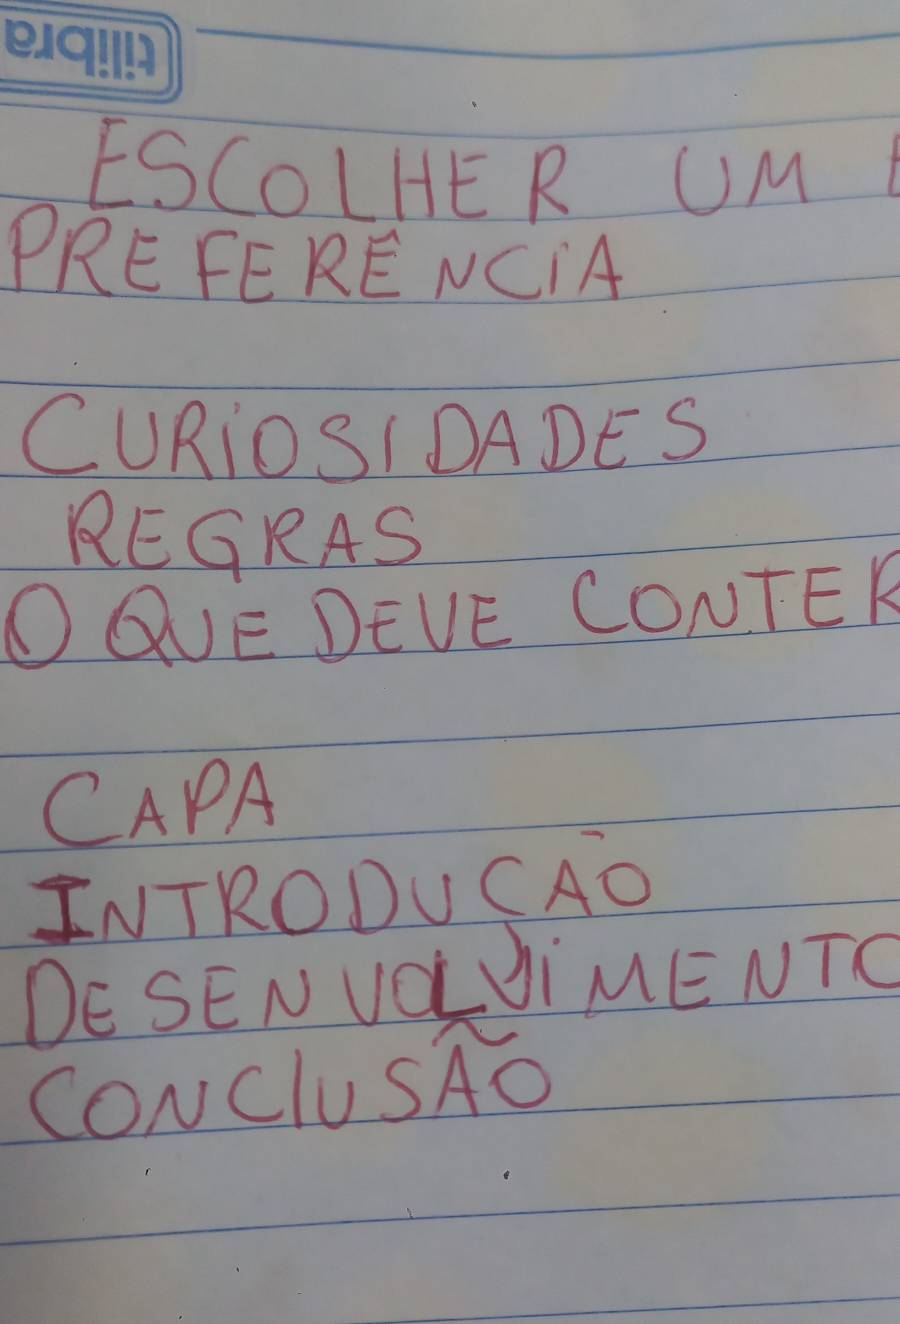 tilibra
ESCOLHER UM
PREFERÊNCIA
CURIOSIDADES
REGRAS
O QUE DEVE CONTER
CAPA
INTRODUCÃO
DESENVOLVIMENTO
CONCLUSÃO